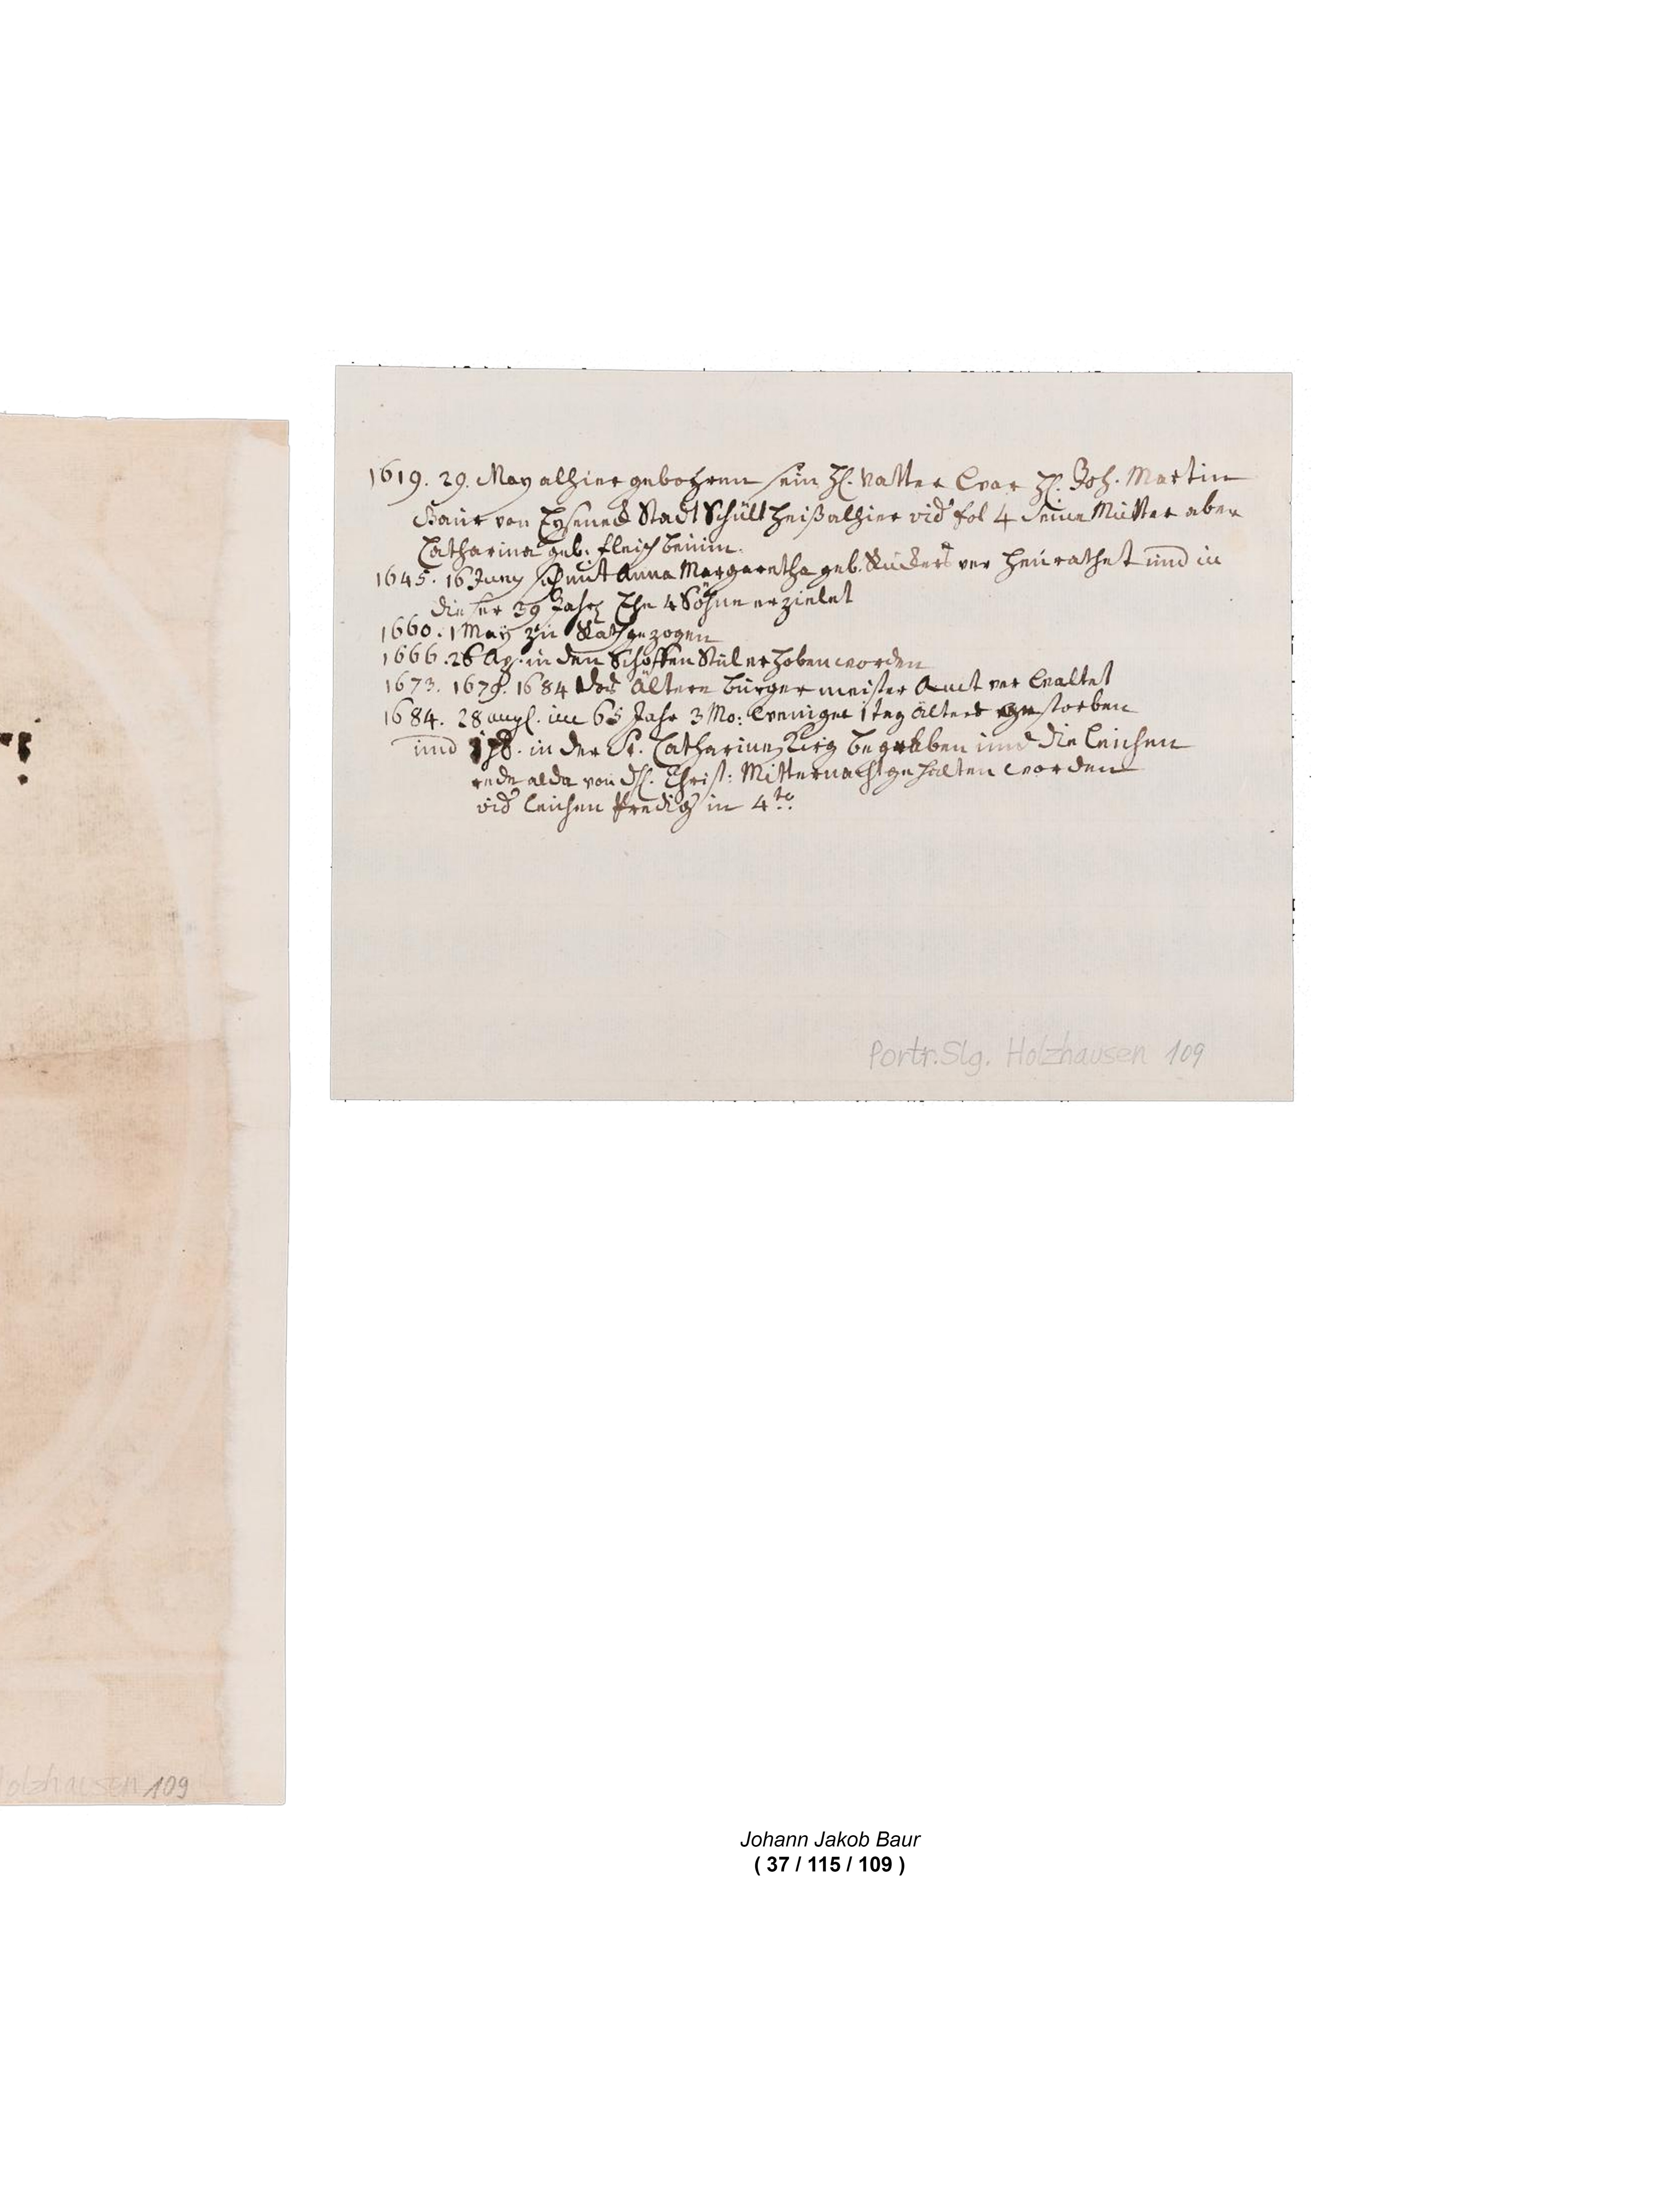 1619. 29. May alhier gebohren sein H. Vatter war H. Joh. Martin
Baur von Eysenec Stadt Schultheiß alhier vid fol 4 seine Mutter aber
Catharina geb. Fleischbeinin.
1645. 16 Juny mit Anna Margaretha geb. verheurathet und in
dieser 39 Jahr Ehe 4 Söhne erzielet
1660. 1 May zu Rath gezogen
1666. 26 Ap. in den Schöffen Stul erhoben worden
1673. 1679. 1684 das Ältere burgermeister Amt verwaltet
1684. 28 augl. im 65 Jahr 3 Mo: weniger 1 tag alters gestorben
und in der St. Catharinen Kirch begraben und die leichen
rede alda von Christ: Mitternacht gehalten worden
vid leichen Predig in 4to.
Portr.Slg. Holzhausen 109
olzhausen 109
Johann Jakob Baur
( 37 / 115 / 109 )